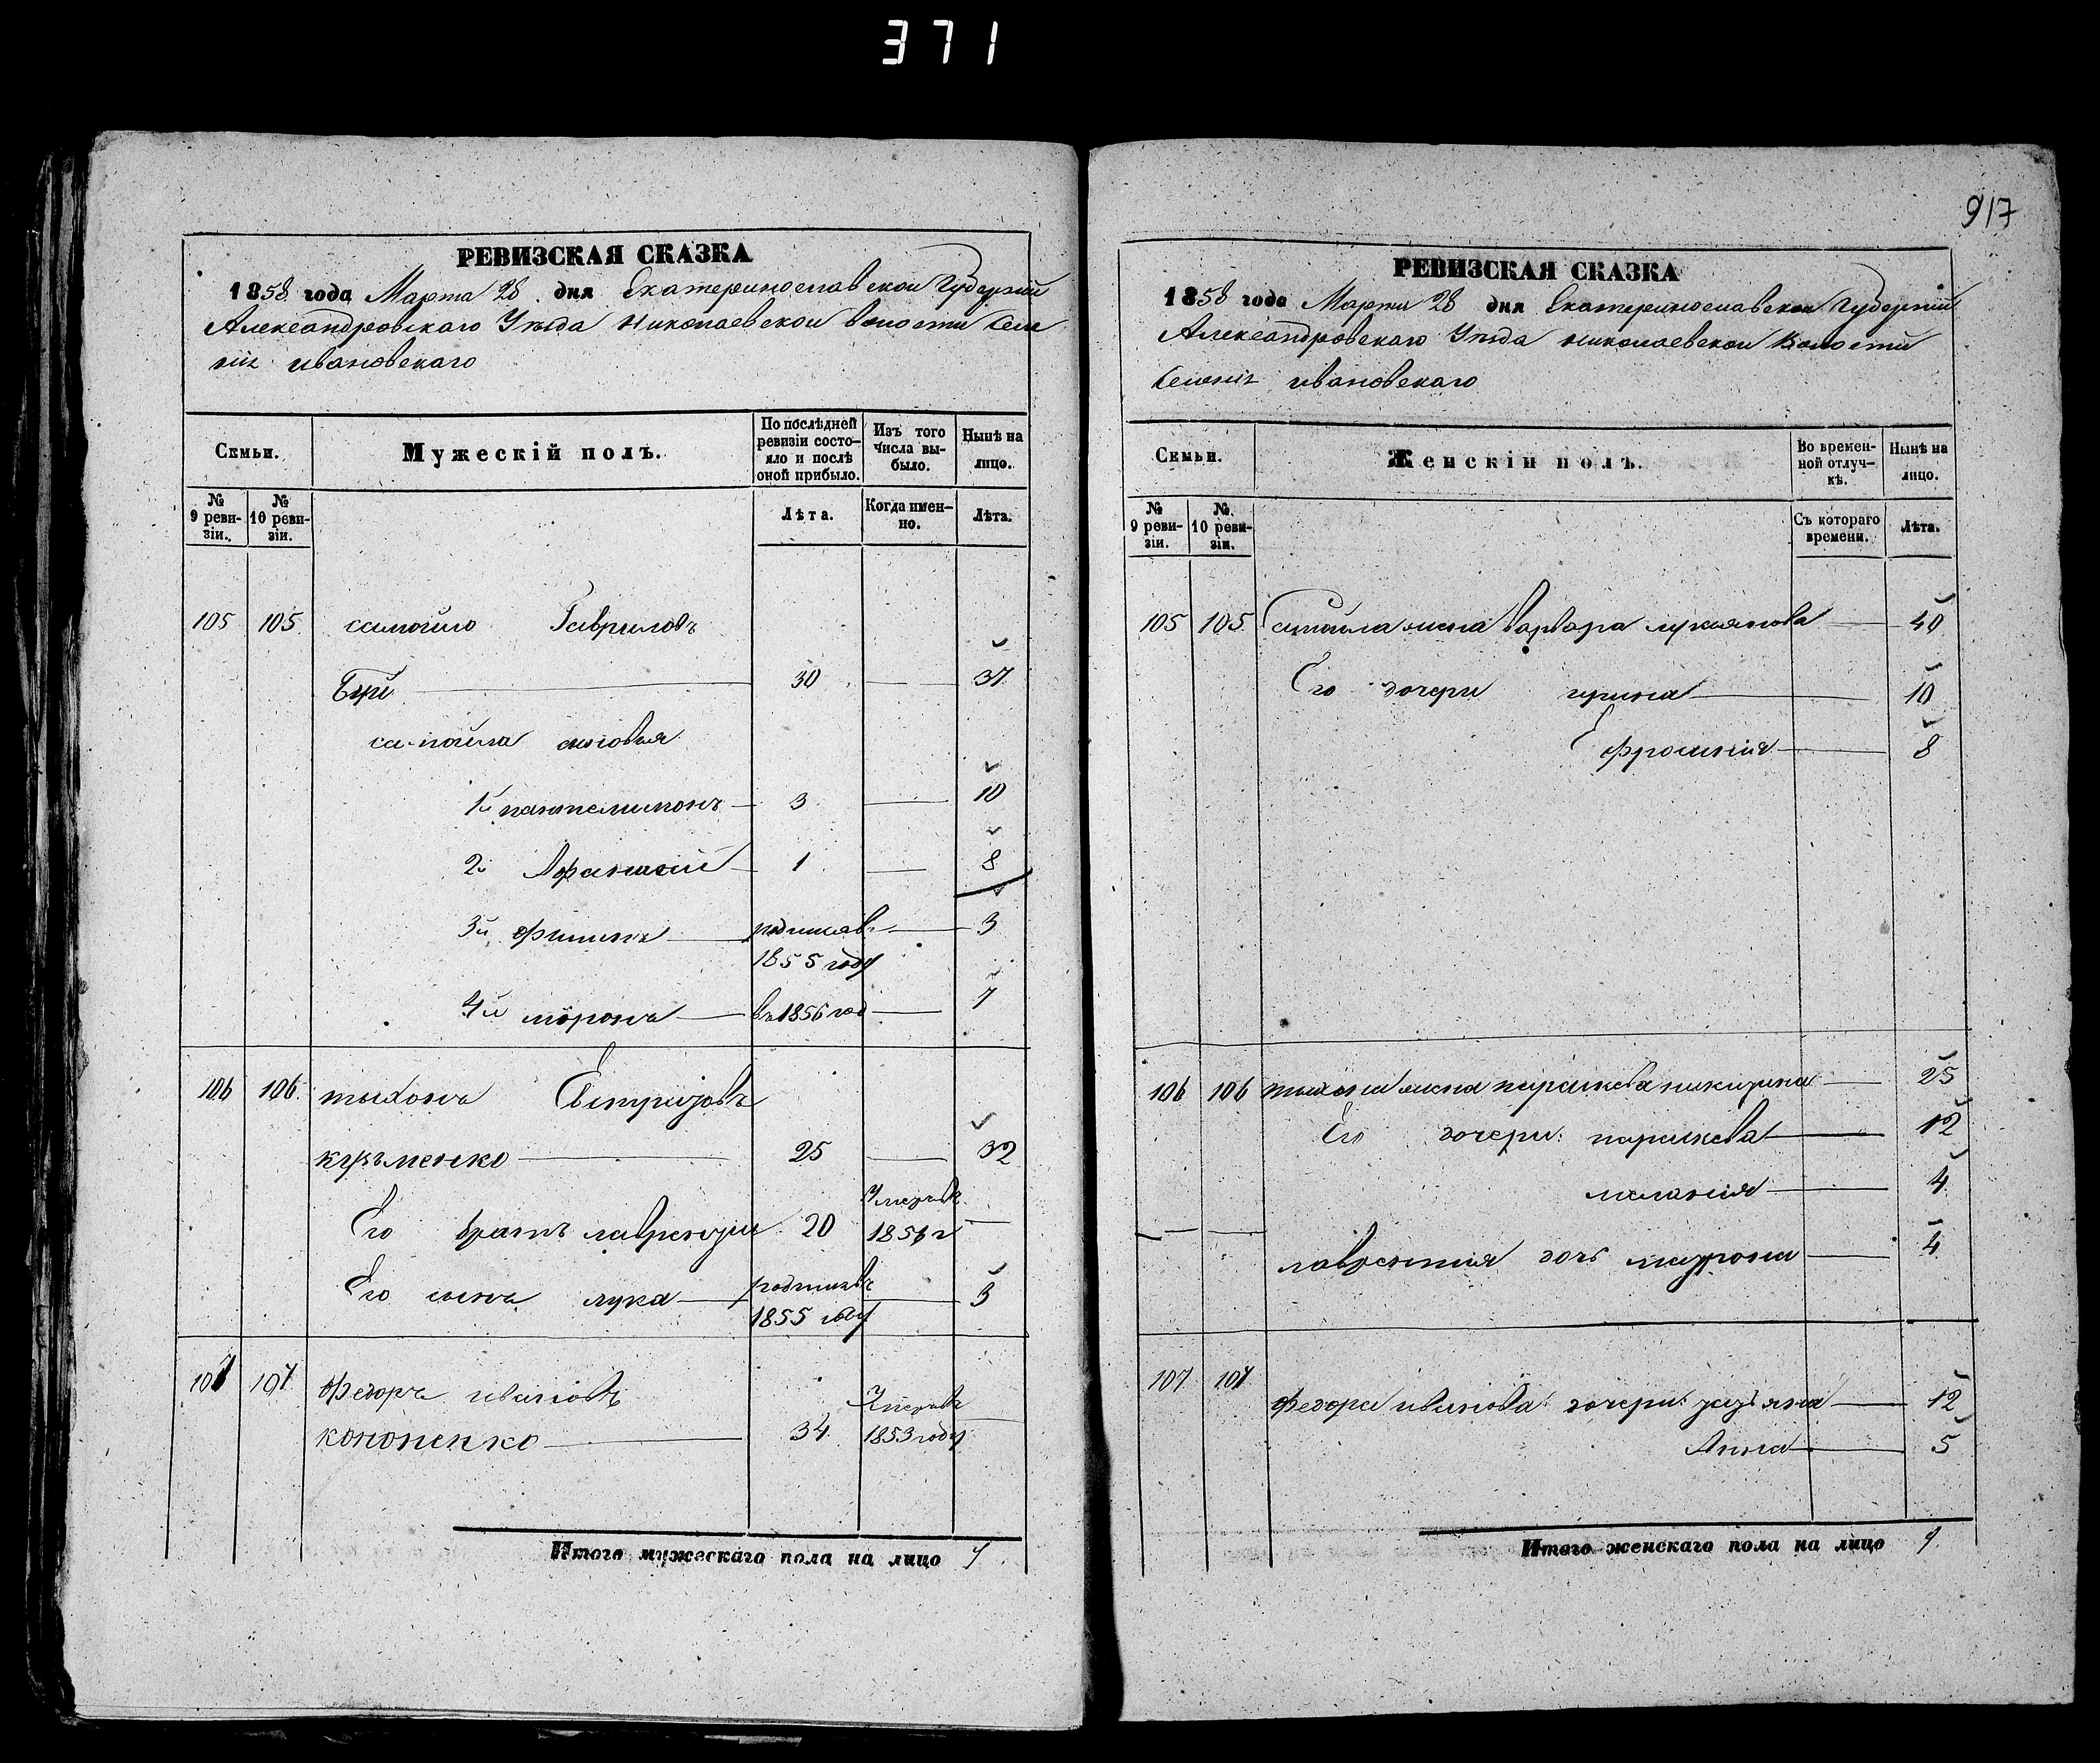 371
РЕВИЗСКАЯ СКАЗКА
1858 года Марта 28 дня Екатеринославской Губерніи
Александровскаго Уѣзда николаевской волости Селе
нія ивановскаго
Семьи.
Мужескій полъ.
По послѣдней ревизіи состояло и послѣ оной прибыло.
Изъ того числа выбыло.
Нынѣ на лицо.
№ 9 ревизіи.
№ 10 ревизіи.
Лѣта.
Когда именно.
Лѣта.
105 105 самойло Гавриловъ
30 — 37
самойла сыновья
1й пантелимонъ — 3 — 10
2й Афанасій — 1 — 8
3й филипъ — родился въ — 3
1855 году
4й миронъ — въ 1856 год —
106 106 тихонъ Евстрифовъ
кузьменко — 25 — 32
Умеръ въ
Его братъ лаврентіи 20 1856 г —
Его сынъ лука — родился въ — 3
1855 году
107 107 федоръ ивановъ Умеръ въ
кононенко — 34 1853 году —
Итого мужескаго пола на лицо 7
917
РЕВИЗСКАЯ СКАЗКА
1858 года Марта 28 дня Екатеринославской Губерніи
Александровскаго Уѣзда николаевской Волости
Селенія ивановскаго
Семьи.
Женскій полъ.
Во временной отлучкѣ.
Нынѣ на лицо.
№ 9 ревизіи.
№ 10 ревизіи.
Съ котораго времени.
Лѣта.
105 105 Самойла жена Варвара лукьянова — 40
Его дочери ирина — 10
Ефросинія — 8
106 106 тихона жена параскева никитина — 25
Его дочери: параскева — 12
меланія — 4
— — лаврентия дочь матрона — 4
107 107 федора иванова дочери: ульяна — 12
Анна — 5
Итого женскаго пола на лицо 9